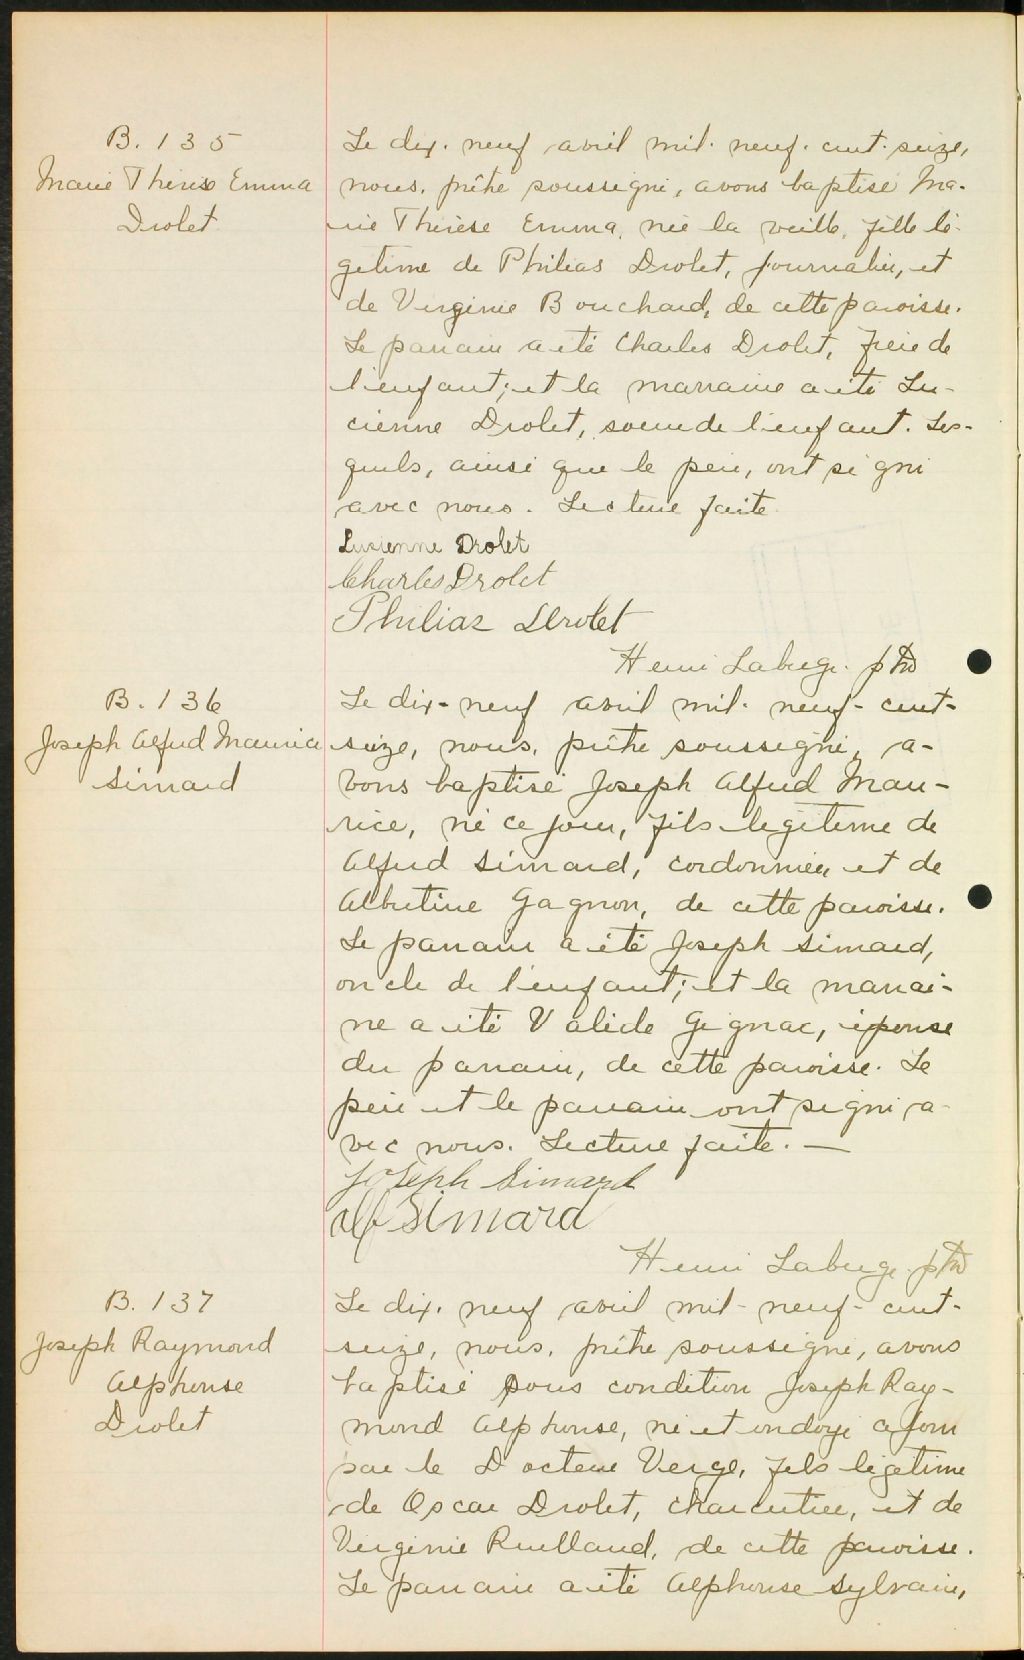 B. 135
Marie Thérèse Emma
Drolet
Le dix-neuf avril mil-neuf-cent-seize,
nous, prêtre soussigné, avons baptisé Ma-
rie Thérèse Emma, née la veille, fille lé-
gitime de Philias Drolet, journalier, et
de Virginie Bouchard, de cette paroisse.
Le parrain a été Charles Drolet, frère de
l'enfant; et la marraine a été Lu-
cienne Drolet, soeur de l'enfant. Les-
quels, ainsi que le père, ont signé
avec nous. Lecture faite
Lucienne Drolet
Charles Drolet
Philias Drolet
Henri Laberge ptre
B. 136
Joseph Alfred Maurice
Simard
Le dix-neuf avril mil-neuf-cent-
seize, nous, prêtre soussigné, a-
vons baptisé Joseph Alfred Mau-
rice, né ce jour, fils légitime de
Alfred Simard, cordonnier et de
Albertine Gagnon, de cette paroisse.
Le parrain a été Joseph Simard,
oncle de l'enfant; et la marrai-
ne a été Valéda Gignac, épouse
du parrain, de cette paroisse. Le
père et le parrain ont signé a-
vec nous. Lecture faite. —
Joseph Simard
Alf Simard
Henri Laberge ptre
B. 137
Joseph Raymond
Alphonse
Drolet
Le dix-neuf avril mil-neuf-cent-
seize, nous, prêtre soussigné, avons
baptisé sous condition Joseph Ray-
mond Alphonse, né et ondoyé ce jour
par le Docteur Verge, fils légitime
de Oscar Drolet, charcutier, et de
Virginie Ruelland, de cette paroisse.
Le parrain a été Alphonse Sylvain,